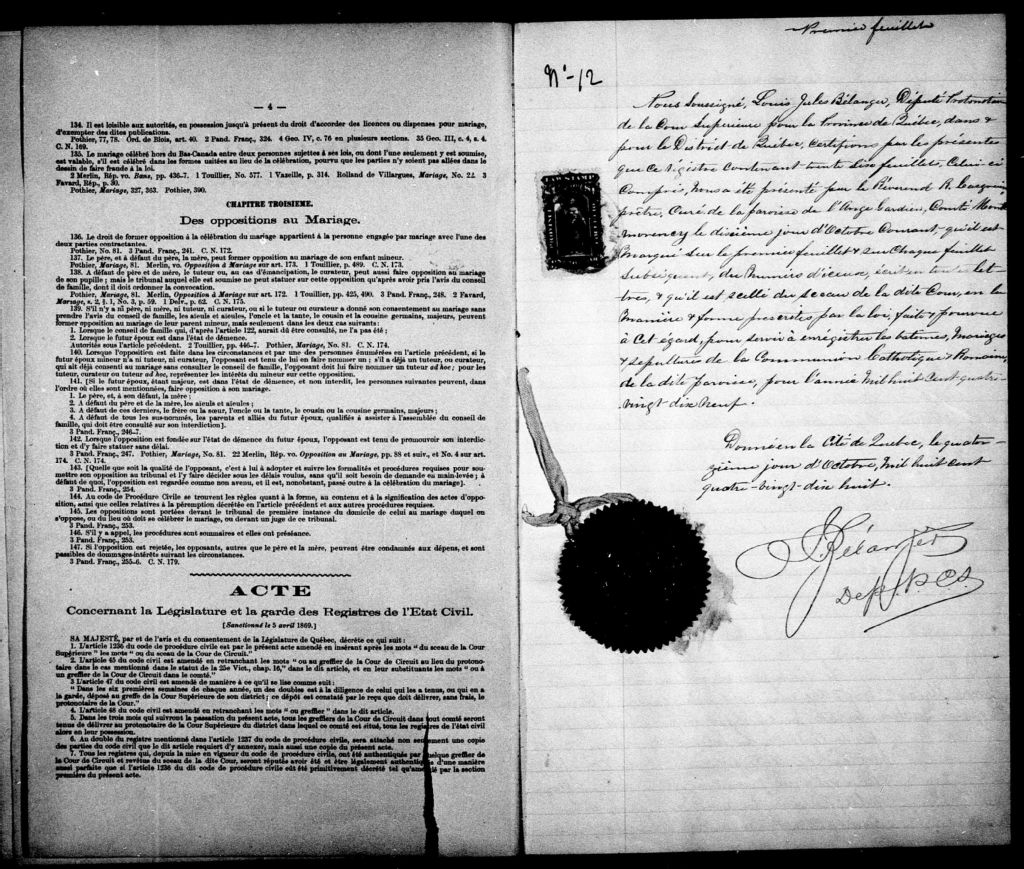 — 4 —
134. Il est loisible aux autorités, en possession jusqu'à présent du droit d'accorder des licences ou dispenses pour mariage,
d'exempter des dites publications.
Pothier, 77, 78. Ord. de Blois, art. 40. 2 Pand. Franç., 324. 4 Geo. IV, c. 76 en plusieurs sections. 35 Geo. III, c. 4, s. 4.
C. N. 169.
135. Le mariage célébré hors du Bas-Canada entre deux personnes sujettes à ses lois, ou dont l'une seulement y est soumise,
est valable, s'il est célébré dans les formes usitées au lieu de la célébration, pourvu que les parties n'y soient pas allées dans le
dessein de faire fraude à la loi.
2 Merlin, Rép. vo. Bans, pp. 436-7. 1 Touillier, No. 577. 1 Vazeille, p. 314. Rolland de Villargues, Mariage, No. 22. 3
Favard, Rép., p. 30.
Pothier, Mariage, 327, 363. Pothier, 390.
CHAPITRE TROISIEME.
Des oppositions au Mariage.
136. Le droit de former opposition à la célébration du mariage appartient à la personne engagée par mariage avec l'une des
deux parties contractantes.
Pothier, No. 81. 3 Pand. Franç., 241. C. N. 172.
137. Le père, et à défaut du père, la mère, peut former opposition au mariage de son enfant mineur.
Pothier, Mariage, 81. Merlin, vo. Opposition à Mariage sur art. 173. 1 Touillier, p. 489. C. N. 173.
138. A défaut de père et de mère, le tuteur ou, au cas d'émancipation, le curateur, peut aussi faire opposition au mariage
de son pupille; mais le tribunal auquel elle est soumise ne peut statuer sur cette opposition qu'après avoir pris l'avis du conseil
de famille, dont il doit ordonner la convocation.
Pothier, Mariage, 81. Merlin, Opposition à Mariage sur art. 172. 1 Touillier, pp. 425, 490. 3 Pand. Franç., 248. 2 Favard,
Mariage, s. 2, §. 1, No. 3, p. 59. 1 Delv., p. 62. C. N. 175.
139. S'il n'y a ni père, ni mère, ni tuteur, ni curateur, ou si le tuteur ou curateur a donné son consentement au mariage sans
prendre l'avis du conseil de famille, les aïeuls et aïeules, l'oncle et la tante, le cousin et la cousine germains, majeurs, peuvent
former opposition au mariage de leur parent mineur, mais seulement dans les deux cas suivants:
1. Lorsque le conseil de famille qui, d'après l'article 122, aurait dû être consulté, ne l'a pas été;
2. Lorsque le futur époux est dans l'état de démence.
Autorités sous l'article précédent. 2 Touillier, pp. 446-7. Pothier, Mariage, No. 81. C. N. 174.
140. Lorsque l'opposition est faite dans les circonstances et par une des personnes énumérées en l'article précédent, si le
futur époux mineur n'a ni tuteur, ni curateur, l'opposant est tenu de lui en faire nommer un; s'il a déjà un tuteur, ou curateur,
qui ait déjà consenti au mariage sans consulter le conseil de famille, l'opposant doit lui faire nommer un tuteur ad hoc; pour les
tuteur, curateur ou tuteur ad hoc, représenter les intérêts du mineur sur cette opposition.
141. [Si le futur époux, étant majeur, est dans l'état de démence, et non interdit, les personnes suivantes peuvent, dans
l'ordre où elles sont mentionnées, faire opposition à son mariage.
1. Le père, et, à son défaut, la mère;
2. A défaut du père et de la mère, les aïeuls et aïeules;
3. A défaut de ces derniers, le frère ou la sœur, l'oncle ou la tante, le cousin ou la cousine germains, majeurs;
4. A défaut de tous les sus-nommés, les parents et alliés du futur époux, qualifiés à assister à l'assemblée du conseil de
famille, qui doit être consulté sur son interdiction].
3 Pand. Franç., 246-7.
142. Lorsque l'opposition est fondée sur l'état de démence du futur époux, l'opposant est tenu de promouvoir son interdic-
tion et d'y faire statuer sans délai.
3 Pand. Franç., 247. Pothier, Mariage, No. 81. 22 Merlin, Rép. vo. Opposition au Mariage, pp. 88 et suiv., et No. 4 sur art.
174. C. N. 174.
143. [Quelle que soit la qualité de l'opposant, c'est à lui à adopter et suivre les formalités et procédures requises pour sou-
mettre son opposition au tribunal et l'y faire décider sous les délais voulus, sans qu'il soit besoin de demande en main-levée; à
défaut de quoi, l'opposition est regardée comme non avenu, et il est, nonobstant, passé outre à la célébration du mariage].
3 Pand. Franç., 254.
144. Au code de Procédure Civile se trouvent les règles quant à la forme, au contenu et à la signification des actes d'oppo-
sition, ainsi que celles relatives à la péremption décrétée en l'article précédent et aux autres procédures requises.
145. Les oppositions sont portées devant le tribunal de première instance du domicile de celui au mariage duquel on
s'oppose, ou du lieu où doit se célébrer le mariage, ou devant un juge de ce tribunal.
3 Pand. Franç., 253.
146. S'il y a appel, les procédures sont sommaires et elles ont préséance.
3 Pand. Franç., 253.
147. Si l'opposition est rejetée, les opposants, autres que le père et la mère, peuvent être condamnés aux dépens, et sont
passibles de dommages-intérêts suivant les circonstances.
3 Pand. Franç., 255-6. C. N. 179.
ACTE
Concernant la Législature et la garde des Registres de l'Etat Civil.
[Sanctionné le 5 avril 1869.]
SA MAJESTÉ, par et de l'avis et du consentement de la Législature de Québec, décrète ce qui suit:
1. L'article 1236 du code de procédure civile est par le présent acte amendé en insérant après les mots "du sceau de la Cour
Supérieure" les mots "ou du sceau de la Cour de Circuit."
2. L'article 45 du code civil est amendé en retranchant les mots "ou au greffier de la Cour de Circuit au lieu du protono-
taire dans le cas mentionné dans le statut de la 25e Vict., chap. 16," dans le dit article, et en leur substituants les mots "ou à
un greffier de la Cour de Circuit dans le comté."
3 L'article 47 du code civil est amendé de manière à ce qu'il se lise comme suit:
"Dans les six premières semaines de chaque année, un des doubles est à la diligence de celui qui les a tenus, ou qui en a
la garde, déposé au greffe de la Cour Supérieure de son district; ce dépôt est constaté par le reçu que doit délivrer, sans frais, le
protonotaire de la Cour."
4. L'article 48 du code civil est amendé en retranchant les mots "ou greffier" dans le dit article.
5. Dans les trois mois qui suivront la passation du présent acte, tous les greffiers de la Cour de Circuit dans tout comté seront
tenus de délivrer au protonotaire de la Cour Supérieure du district dans lequel ce comté est situé, tous les registres de l'état civil
alors en leur possession.
6. Au double du registre mentionné dans l'article 1237 du code de procédure civile, sera attaché non seulement une copie
des parties du code civil que le dit article requiert d'y annexer, mais aussi une copie du présent acte.
7. Tous les registres qui, depuis la mise en vigueur du code de procédure civile, ont été authentiqués par quelque greffier de
la Cour de Circuit et revêtus du sceau de la dite Cour, seront réputés avoir été et être légalement authentiqués d'une manière
aussi parfaite que si l'article 1236 du dit code de procédure civile eût été primitivement décrété tel qu'amendé par la section
première du présent acte.
Premier feuillet
N°-12
Nous Soussigné, Louis Jules Bélanger, Député Protonotaire
de la Cour Supérieure pour la Province de Québec, dans &
pour le District de Québec, Certifions par les présentes
que Ce régistre Contenant trente Six feuillets, Celui-ci
Compris, Nous a été présenté par le Révérend R. Casgrain
prêtre, Curé de la paroisse de l'Ange Gardien, Comté Mont
morency le dixième jour d'Octobre Courant, qu'il est
Marqué Sur le premier feuillet & sur Chaque feuillet
Subséquent, du Numéro d'iceux, écrit en toutes let-
tres, & qu'il est scellé du sceau de la dite Cour, en la
Manière & forme prescrites par la loi, faite & pourvue
à Cet égard, pour servir à enrégistrer les batêmes, Mariages
& sépultures de la Communion Catholique & Romaine,
de la dite Paroisse, pour l'année Mil huit Cent quatre-
vingt dix Neuf.
Donné en la Cité de Québec, le quator-
zième jour d'Octobre, Mil huit Cent
quatre-vingt-dix huit.
L. J. Bélanger
Dep. P. C. S.